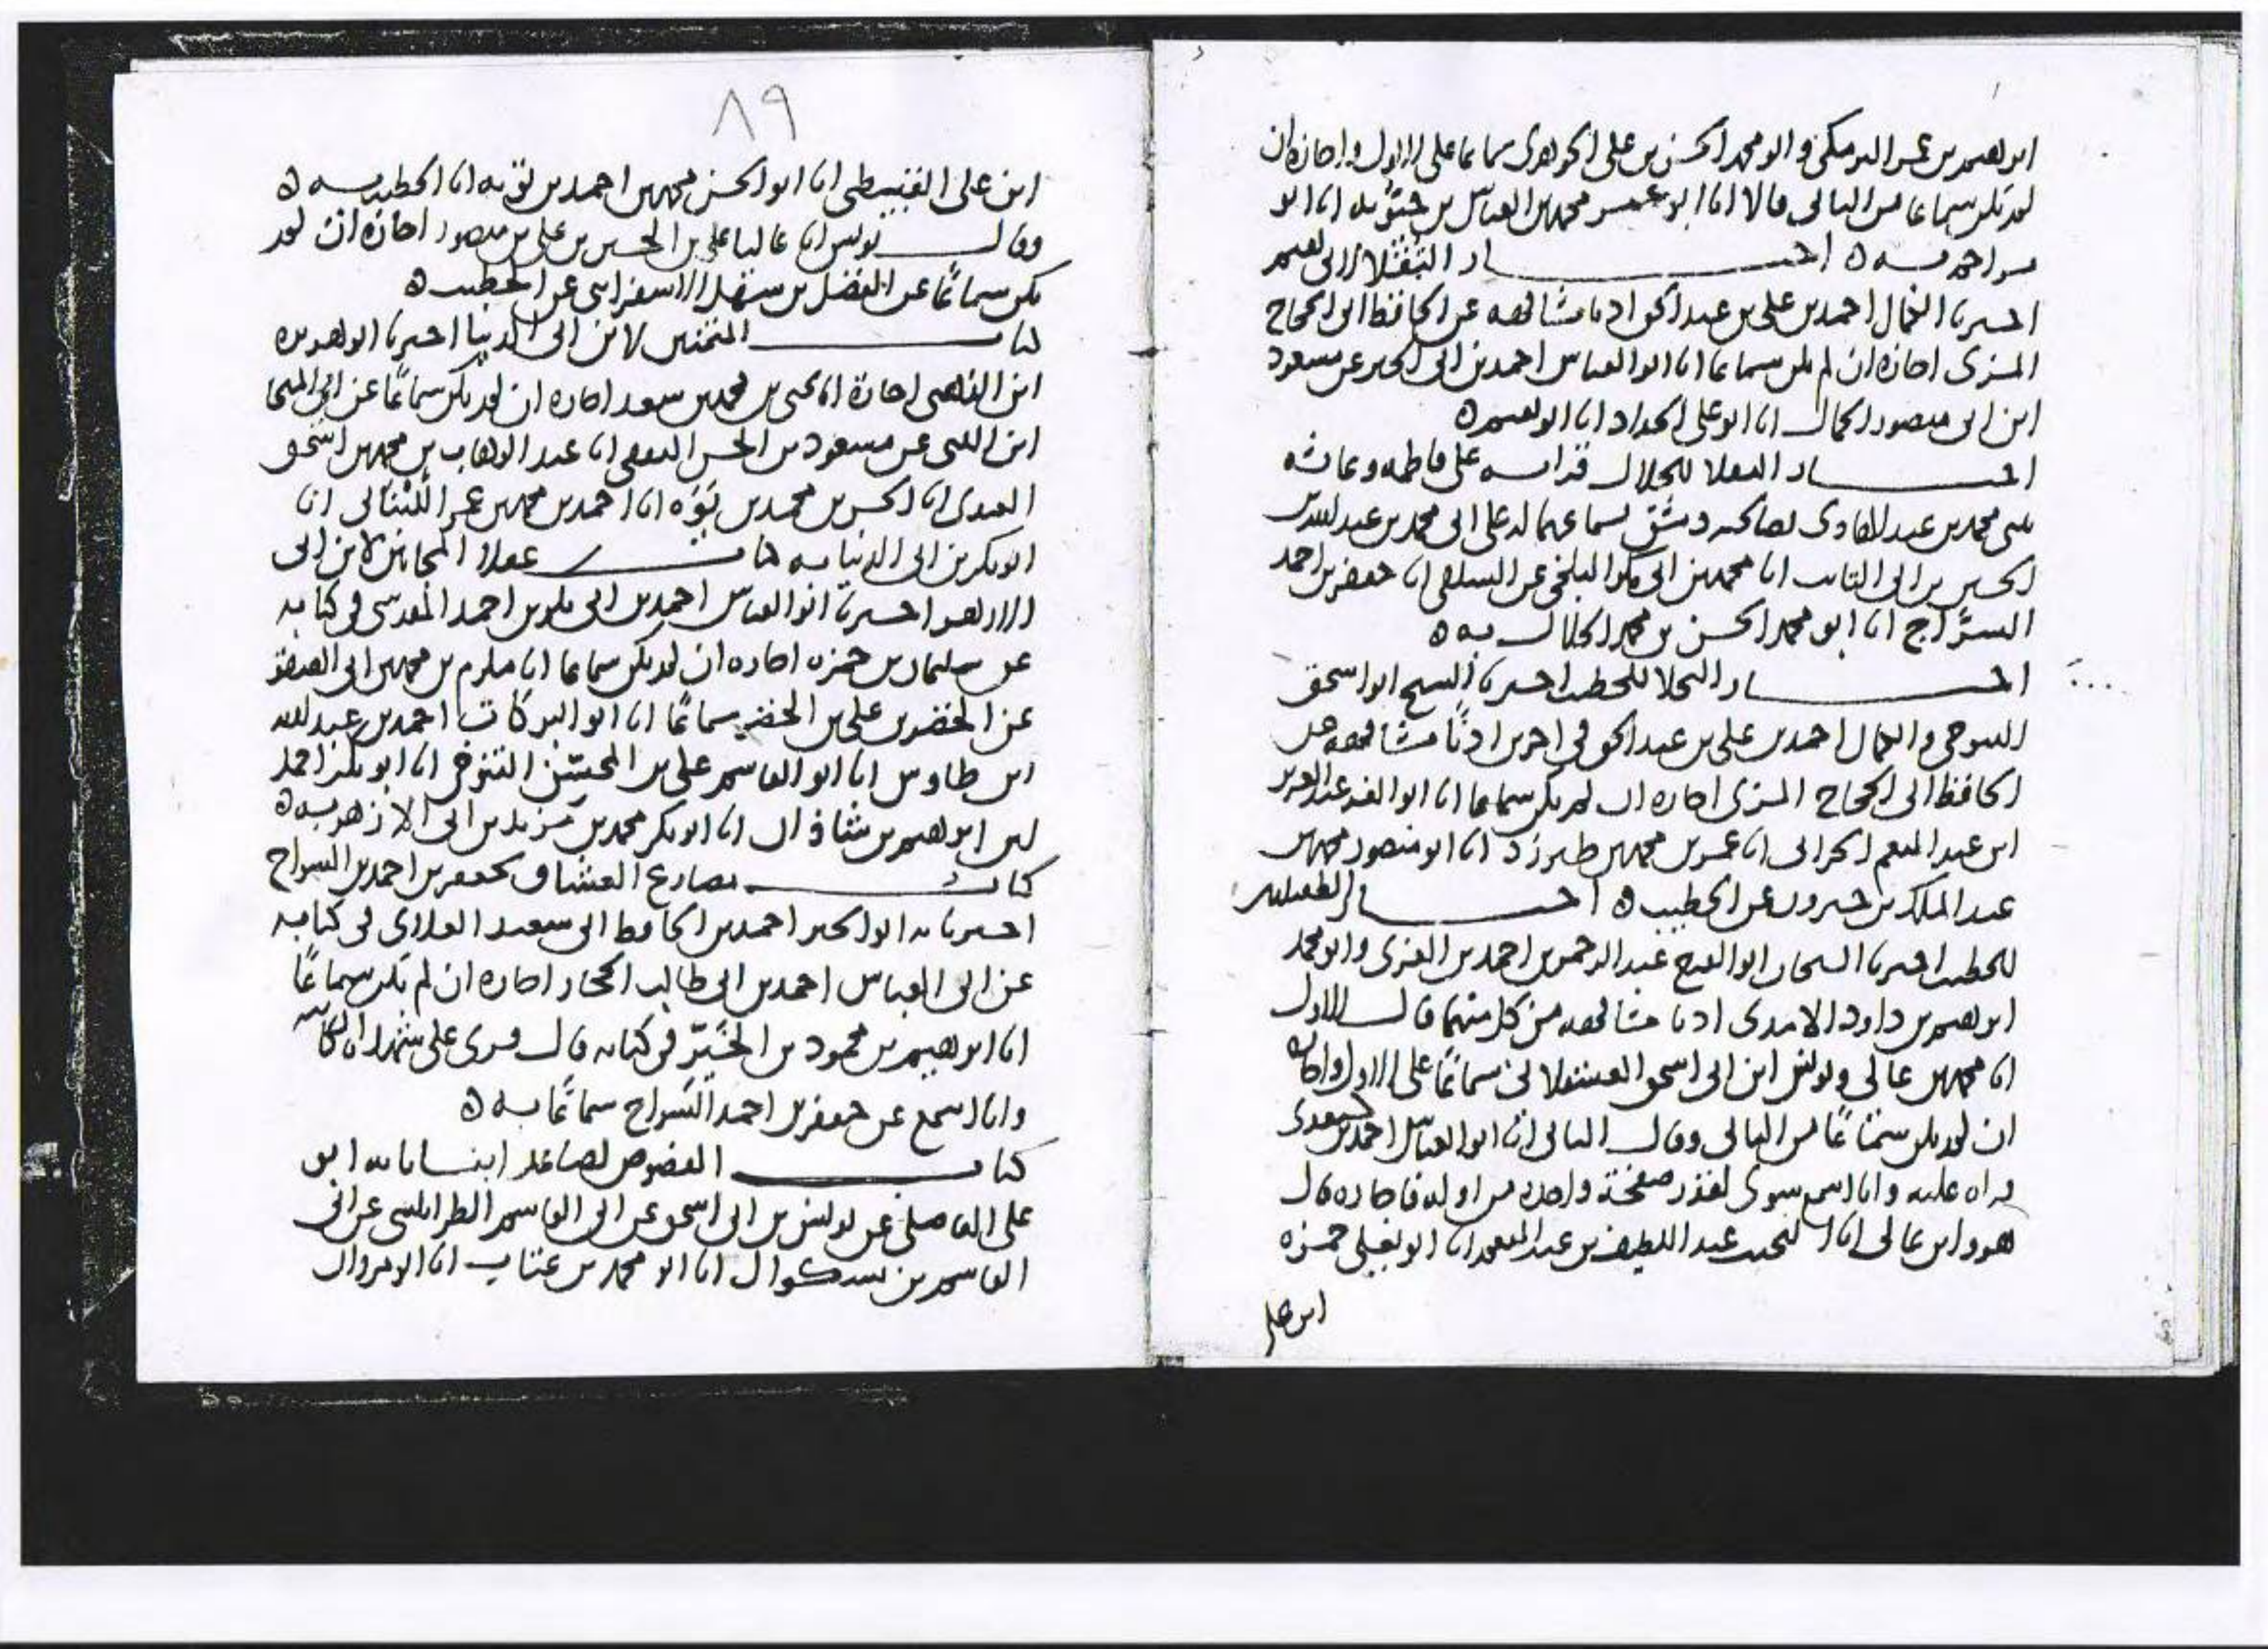 ابرهيم بن عمر البرمكي و ابو محمد الحسن بن علي الجوهري سماعا على الاول واجازة ان
لم يكن سماعا من الثاني قالا انا ابو عمر محمد بن العباس بن حيويه انا ابو
احمد به ه اخبار الثقلاء لابي نعيم
اخبرنا الكمال احمد بن علي بن عبد الحق اذنا مشافهه عن الحافظ ابي الحجاج
المزي اجازة ان لم يكن سماعا انا ابو العباس احمد بن ابي الخير عن مسعود
ابن ابي منصور الجمال انا ابو علي الحداد انا ابو نعيم به ه
اخبار الثقلا للخلال قراته على فاطمه وعائشه
بنتي محمد بن عبد الهادي بصالحيه دمشق بسماعهما له على ابي محمد بن عبد الله بن
الحسين بن ابي التائب انا محمد بن ابي بكر البلخي عن السلفي انا جعفر بن احمد
السراج انا ابو محمد الحسن بن محمد الخلال به ه
اخبار البخلا للخطيب اخبرنا الشيخ ابو اسحق
التنوخي والكمال احمد بن علي بن عبد الحق في اخرين اذنا مشافهه عن
الحافظ ابي الحجاج المزي اجازه ان لم يكن سماعا انا ابو العز عبد العزيز
ابن عبد المنعم الحراني انا عمر بن محمد بن طبرزد انا ابو منصور محمد بن
عبد الملك بن خيرون عن الخطيب ه اخبار الطفيليين
للخطيب اخبرنا الشيخان ابو الفرج عبد الرحمن بن احمد بن الغزي وابو محمد
ابرهيم بن داود الامدي اذنا مشافهه من كل منهما قال الاول
انا محمد بن غالي ويونس ابن ابي اسحق العسقلاني سماعا على الاول واجازه
ان لم يكن سماعا من الثاني وقال الثاني انا ابو العباس احمد بن
قراه عليه وانا اسمع سوى لقدر صفحة واحده من اوله فاجازه قال
هو وابن غالي انا النجيب عبد اللطيف بن عبد المنعم انا ابو يعلى حمزه
ابن علي
٨٩
ابن علي القبيطي انا ابو الحسن محمد بن احمد بن توبه انا الخطيب به ه
وقال يونس انا عاليا علي بن الحسين بن علي بن منصور اجازة ان لم
يكن سماعا عن الفضل بن سهل الاسفرايني عن الخطيب ه
كتاب المتمنين لابن ابي الدنيا اخبرنا ابو هريره
ابن الذهبي اجازة انا يحيى بن محمد بن سعد اجازه ان لم يكن سماعا عن ابي المنجا
ابن اللتي عن مسعود بن الحسن الثقفي انا عبد الوهاب بن محمد بن اسحق
العبدي انا الحسن بن محمد بن يوه انا احمد بن محمد بن عمر اللبناني انا
ابو بكر بن ابي الدنيا به كتاب عقلاء المجانين لابن ابي
الازهر اخبرنا ابو العباس احمد بن ابي بكر بن احمد المقدسي في كتابه
عن سليمان بن حمزه اجازه ان لم يكن سماعا انا مكرم بن محمد بن ابي الصقر
عن الخضر بن علي بن الخضر سماعا انا ابو البركات احمد بن عبد الله
ابن طاوس انا ابو القاسم علي بن المحسن التنوخي انا ابو بكر احمد
بن ابرهيم بن شاذان انا ابو بكر محمد بن مزيد بن ابي الازهر به ه
كتاب مصارع العشاق لجعفر بن احمد بن السراج
اخبرنا به ابو الخير احمد بن الحافظ ابي سعيد العلائي في كتابه
عن ابي العباس احمد بن ابي طالب الحجار اجازه ان لم يكن سماعا
انا ابرهيم بن محمود بن الخير في كتابه قال قرئ على شهدا الكاتبه
وانا اسمع عن جعفر بن احمد السراج سماعا به ه
كتاب الفصوص لصاعد انبانا به ابو
علي الفاضلي عن يونس بن ابي اسحق عن ابي القاسم الطرابلسي عن ابي
القاسم بن بشكوال انا ابو محمد بن عتاب انا ابو مروان